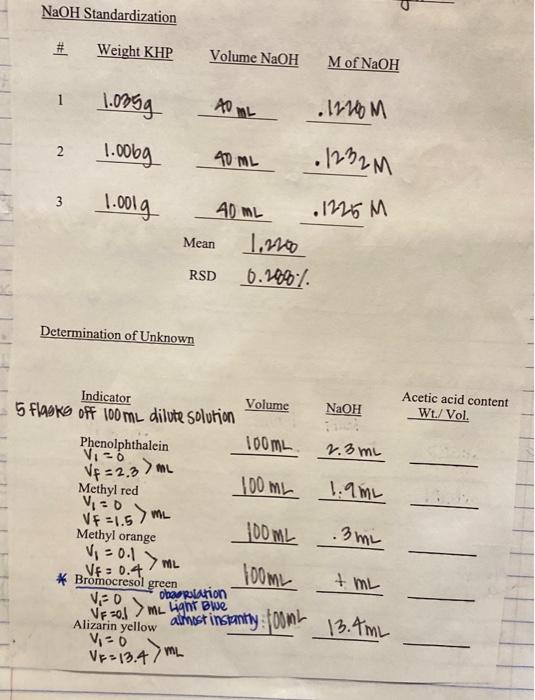 NaOH Standardization
# Weight KHP Volume NaOH M of NaOH
1 1.035g 40 mL
2 1.006g 40 mL .1232 M
3 1.001g 40 mL .1225 M
Mean
RSD
Determination of Unknown
Indicator Volume NaOH Acetic acid content
5 flasks off 100 mL dilute solution Wt./ Vol.
Phenolphthalein 100 mL 2.3 mL
V₁ = 0
VF = 2.3 > mL
Methyl red 100 mL 1.9 mL
V₁ = 0
VF = 1.5 > mL
Methyl orange 100 mL .3 mL
V₁ = 0.1
VF = 0.4 > mL
* Bromocresol green 100 mL mL
V₁ = 0 observation
VF = 0.1 > mL Light Blue
Alizarin yellow almost instantly 100 mL 13.4 mL
V₁ = 0
VF = 13.4 > mL